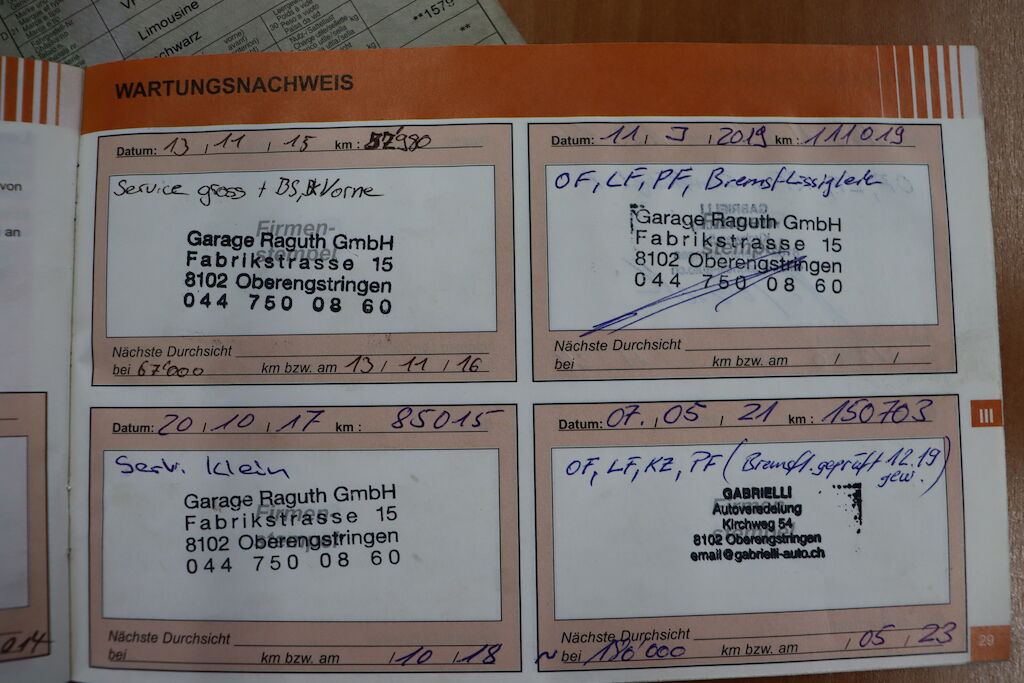 Limousine
schwarz
**1579
**
von
an
WARTUNGSNACHWEIS
Datum: 13 / 11 / 15 km: 57'980
Service gross + BS, BK Vorne
Firmen-
stempel
Garage Raguth GmbH
Fabrikstrasse 15
8102 Oberengstringen
044 750 08 60
Nächste Durchsicht
bei 67'000 km bzw. am 13 / 11 / 16
Datum: 11. J / 2019 km: 111019
OF, LF, PF, Bremsflüssigkeit
GABRIELLI
Garage Raguth GmbH
Fabrikstrasse 15
8102 Oberengstringen
044 750 08 60
Nächste Durchsicht
bei km bzw. am / /
Datum: 20 / 10 / 17 km: 85015
Serv. klein
Garage Raguth GmbH
Fabrikstrasse 15
8102 Oberengstringen
044 750 08 60
Nächste Durchsicht
bei km bzw. am / 10 / 18
Datum: 07. / 05 / 21 km: 150703
OF, LF, KZ, PF (Bremsfl. geprüft 12.19
gew.)
GABRIELLI
Autoveredelung
Kirchweg 54
8102 Oberengstringen
email@gabrielli-auto.ch
Nächste Durchsicht
~ bei 180'000 km bzw. am / 05 / 23
III
29
014